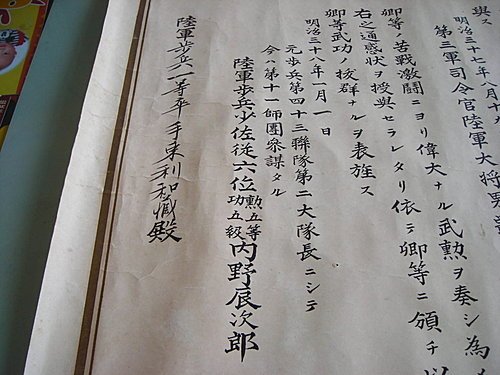 與ス
明治三十七年八月十九
第三軍司令官陸軍大將男爵
卿等ノ苦戰激鬪ニヨリ偉大ナル武勲ヲ奏シ為
右之通感狀ヲ授與セラレタリ依テ卿等ニ頒チ以
卿等武功ノ拔群ナルヲ表旌ス
明治三十八年一月一日
元步兵第四十三聯隊第二大隊長ニシテ
今ハ第十一師團參謀タル
陸軍步兵少佐從六位勲五等功五級內野辰次郎
陸軍步兵一等卒手束利和藏殿